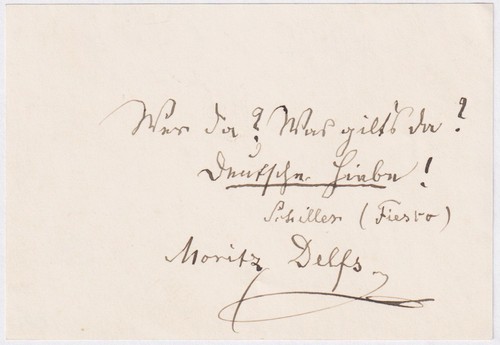 Wer da? Was gilt's da?
Deutsche Hiebe!
Schiller (Fiesco)
Moritz Delfs